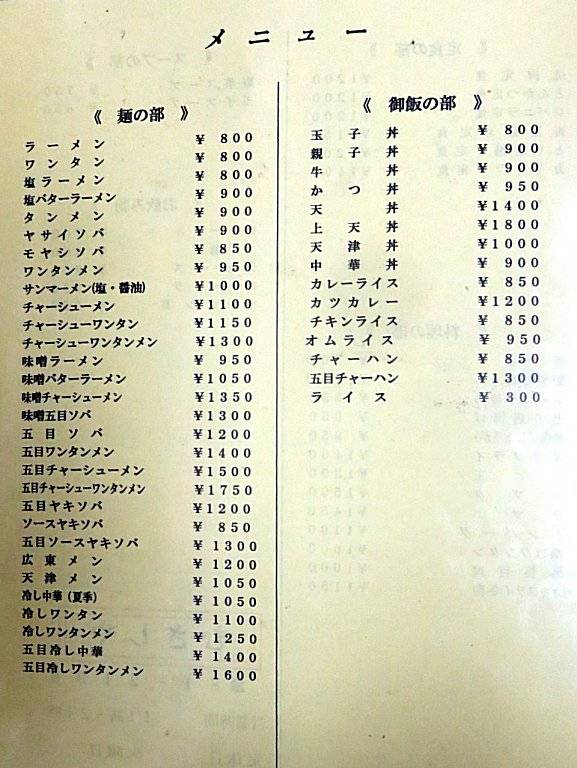 メニュー
《 麺の部 》
ラーメン ¥ 800
ワンタン ¥ 800
塩ラーメン ¥ 800
塩バターラーメン ¥ 900
タンメン ¥ 900
ヤサイソバ ¥ 900
モヤシソバ ¥ 850
ワンタンメン ¥ 950
サンマーメン(塩・醤油) ¥1000
チャーシューメン ¥1100
チャーシューワンタン ¥1150
チャーシューワンタンメン ¥1300
味噌ラーメン ¥ 950
味噌バターラーメン ¥1050
味噌チャーシューメン ¥1350
味噌五目ソバ ¥1300
五目ソバ ¥1200
五目ワンタンメン ¥1400
五目チャーシューメン ¥1500
五目チャーシューワンタンメン ¥1750
五目ヤキソバ ¥1200
ソースヤキソバ ¥ 850
五目ソースヤキソバ ¥1300
広東メン ¥1200
天津メン ¥1050
冷し中華(夏季) ¥1050
冷しワンタン ¥1100
冷しワンタンメン ¥1250
五目冷し中華 ¥1400
五目冷しワンタンメン ¥1600
《 御飯の部 》
玉子丼 ¥ 800
親子丼 ¥ 900
牛丼 ¥ 900
かつ丼 ¥ 950
天丼 ¥1400
上天丼 ¥1800
天津丼 ¥1000
中華丼 ¥ 900
カレーライス ¥ 850
カツカレー ¥1200
チキンライス ¥ 850
オムライス ¥ 950
チャーハン ¥ 850
五目チャーハン ¥1300
ライス ¥ 300